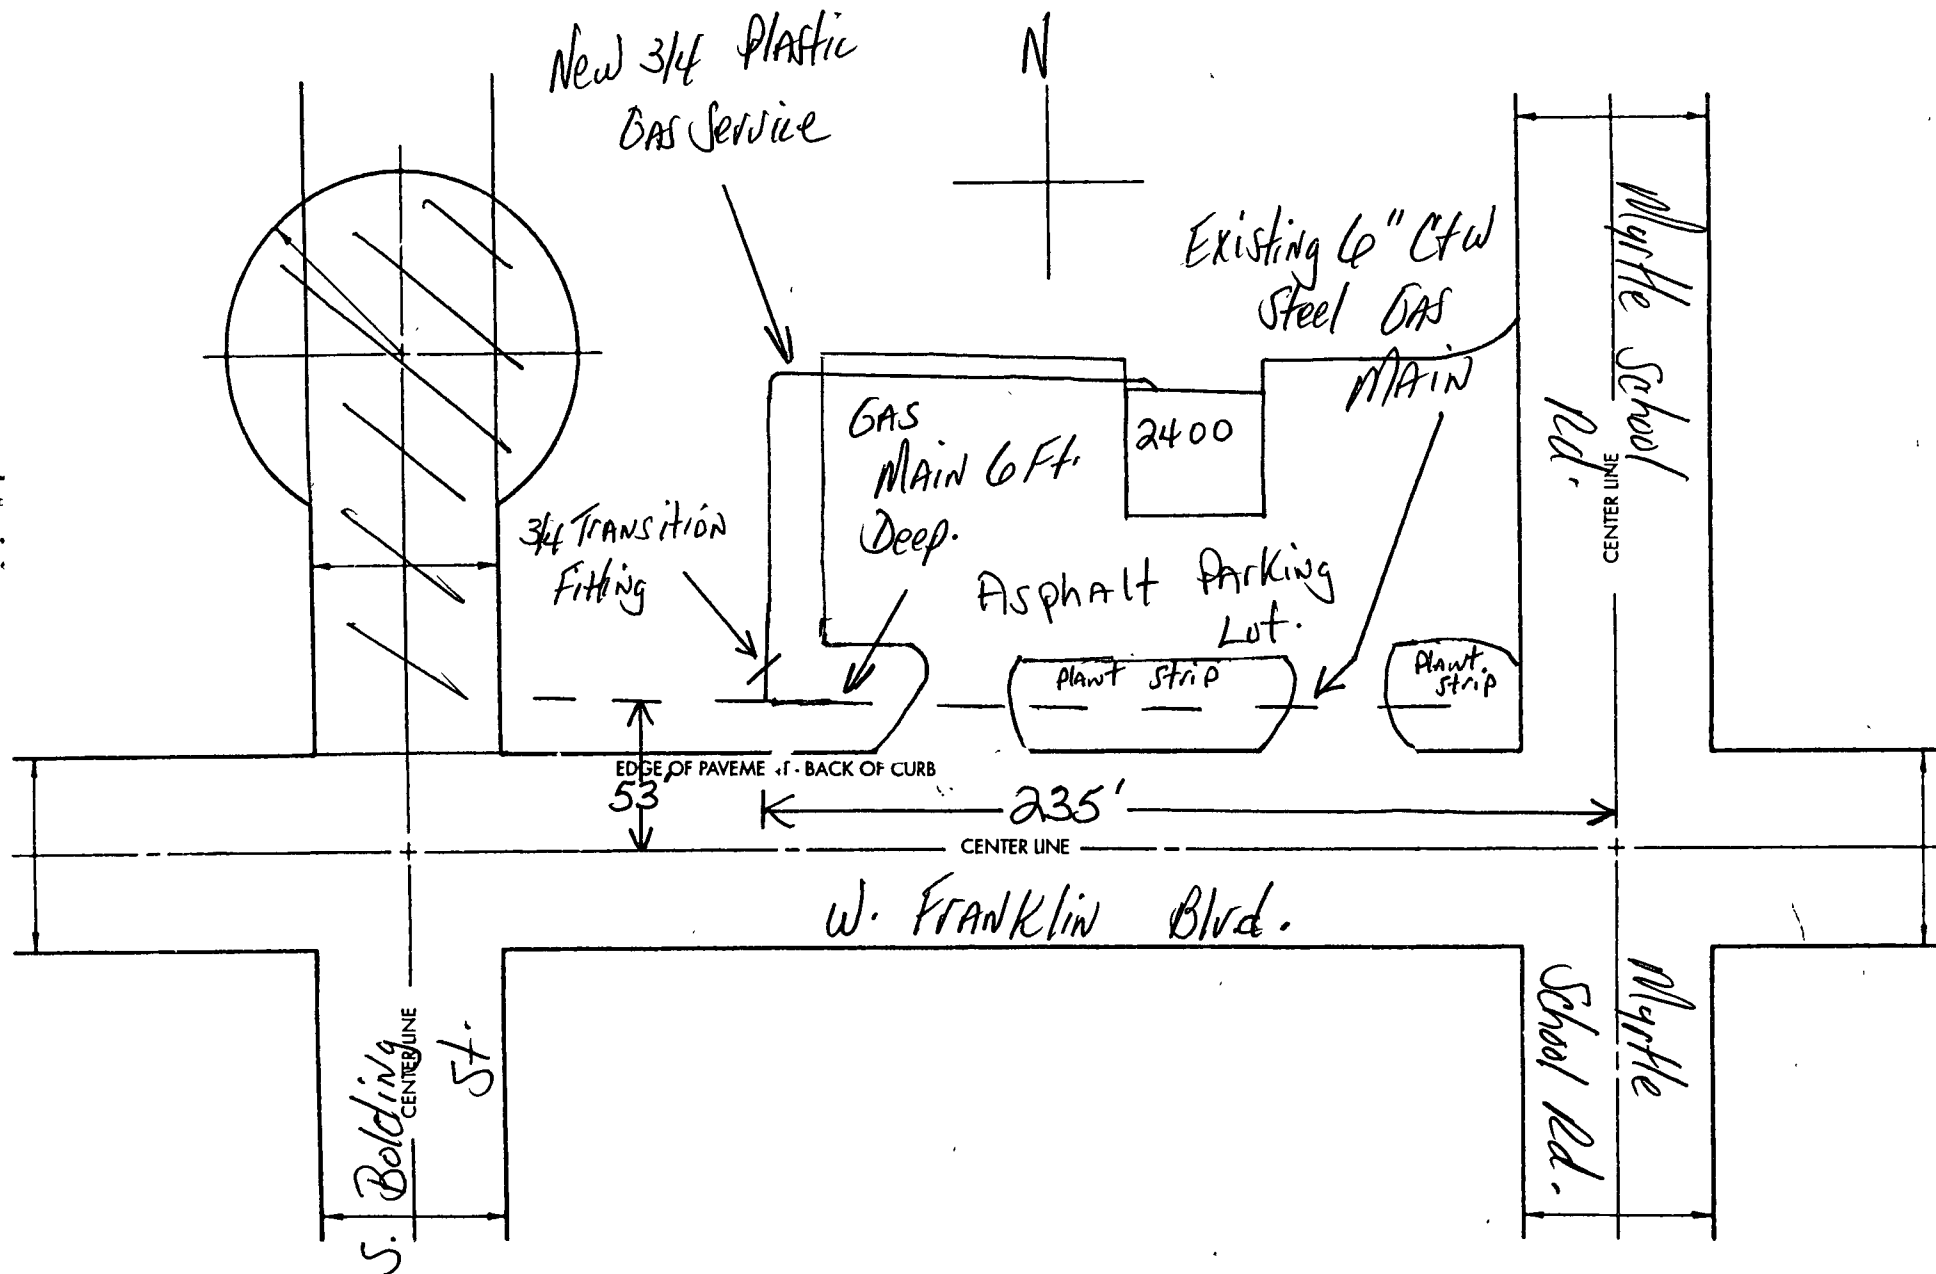 New 3/4 Plastic
Gas Service
N
Existing 6" C+W
Steel GAS
MAIN
Myrtle School
Rd.
CENTER LINE
GAS
MAIN 6 Ft.
Deep.
2400
3/4 TRANSITION
Fitting
Asphalt Parking
Lot.
Plant Strip
Plant.
Strip
EDGE OF PAVEME T - BACK OF CURB
53'
235'
CENTER LINE
W. FRANKlin Blvd.
S. Bolding
St.
CENTER LINE
Myrtle
School Rd.